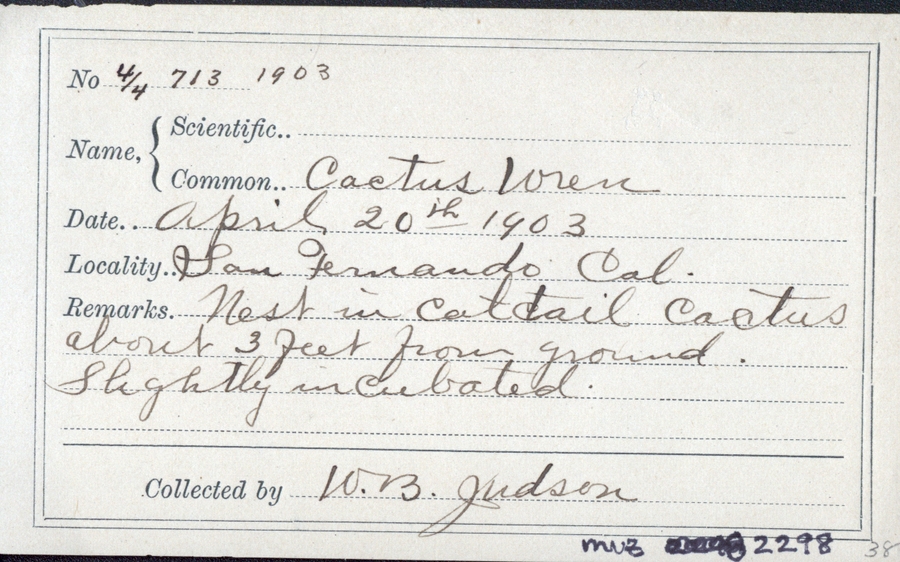 No 4/4 713 1903
Name, { Scientific..
Common.. Cactus Wren
Date.. April 20th 1903
Locality.. San Fernando Cal.
Remarks. Nest in cattail cactus
about 3 feet from ground.
Slightly incubated.
Collected by W. B. Judson
MVZ 2298 38